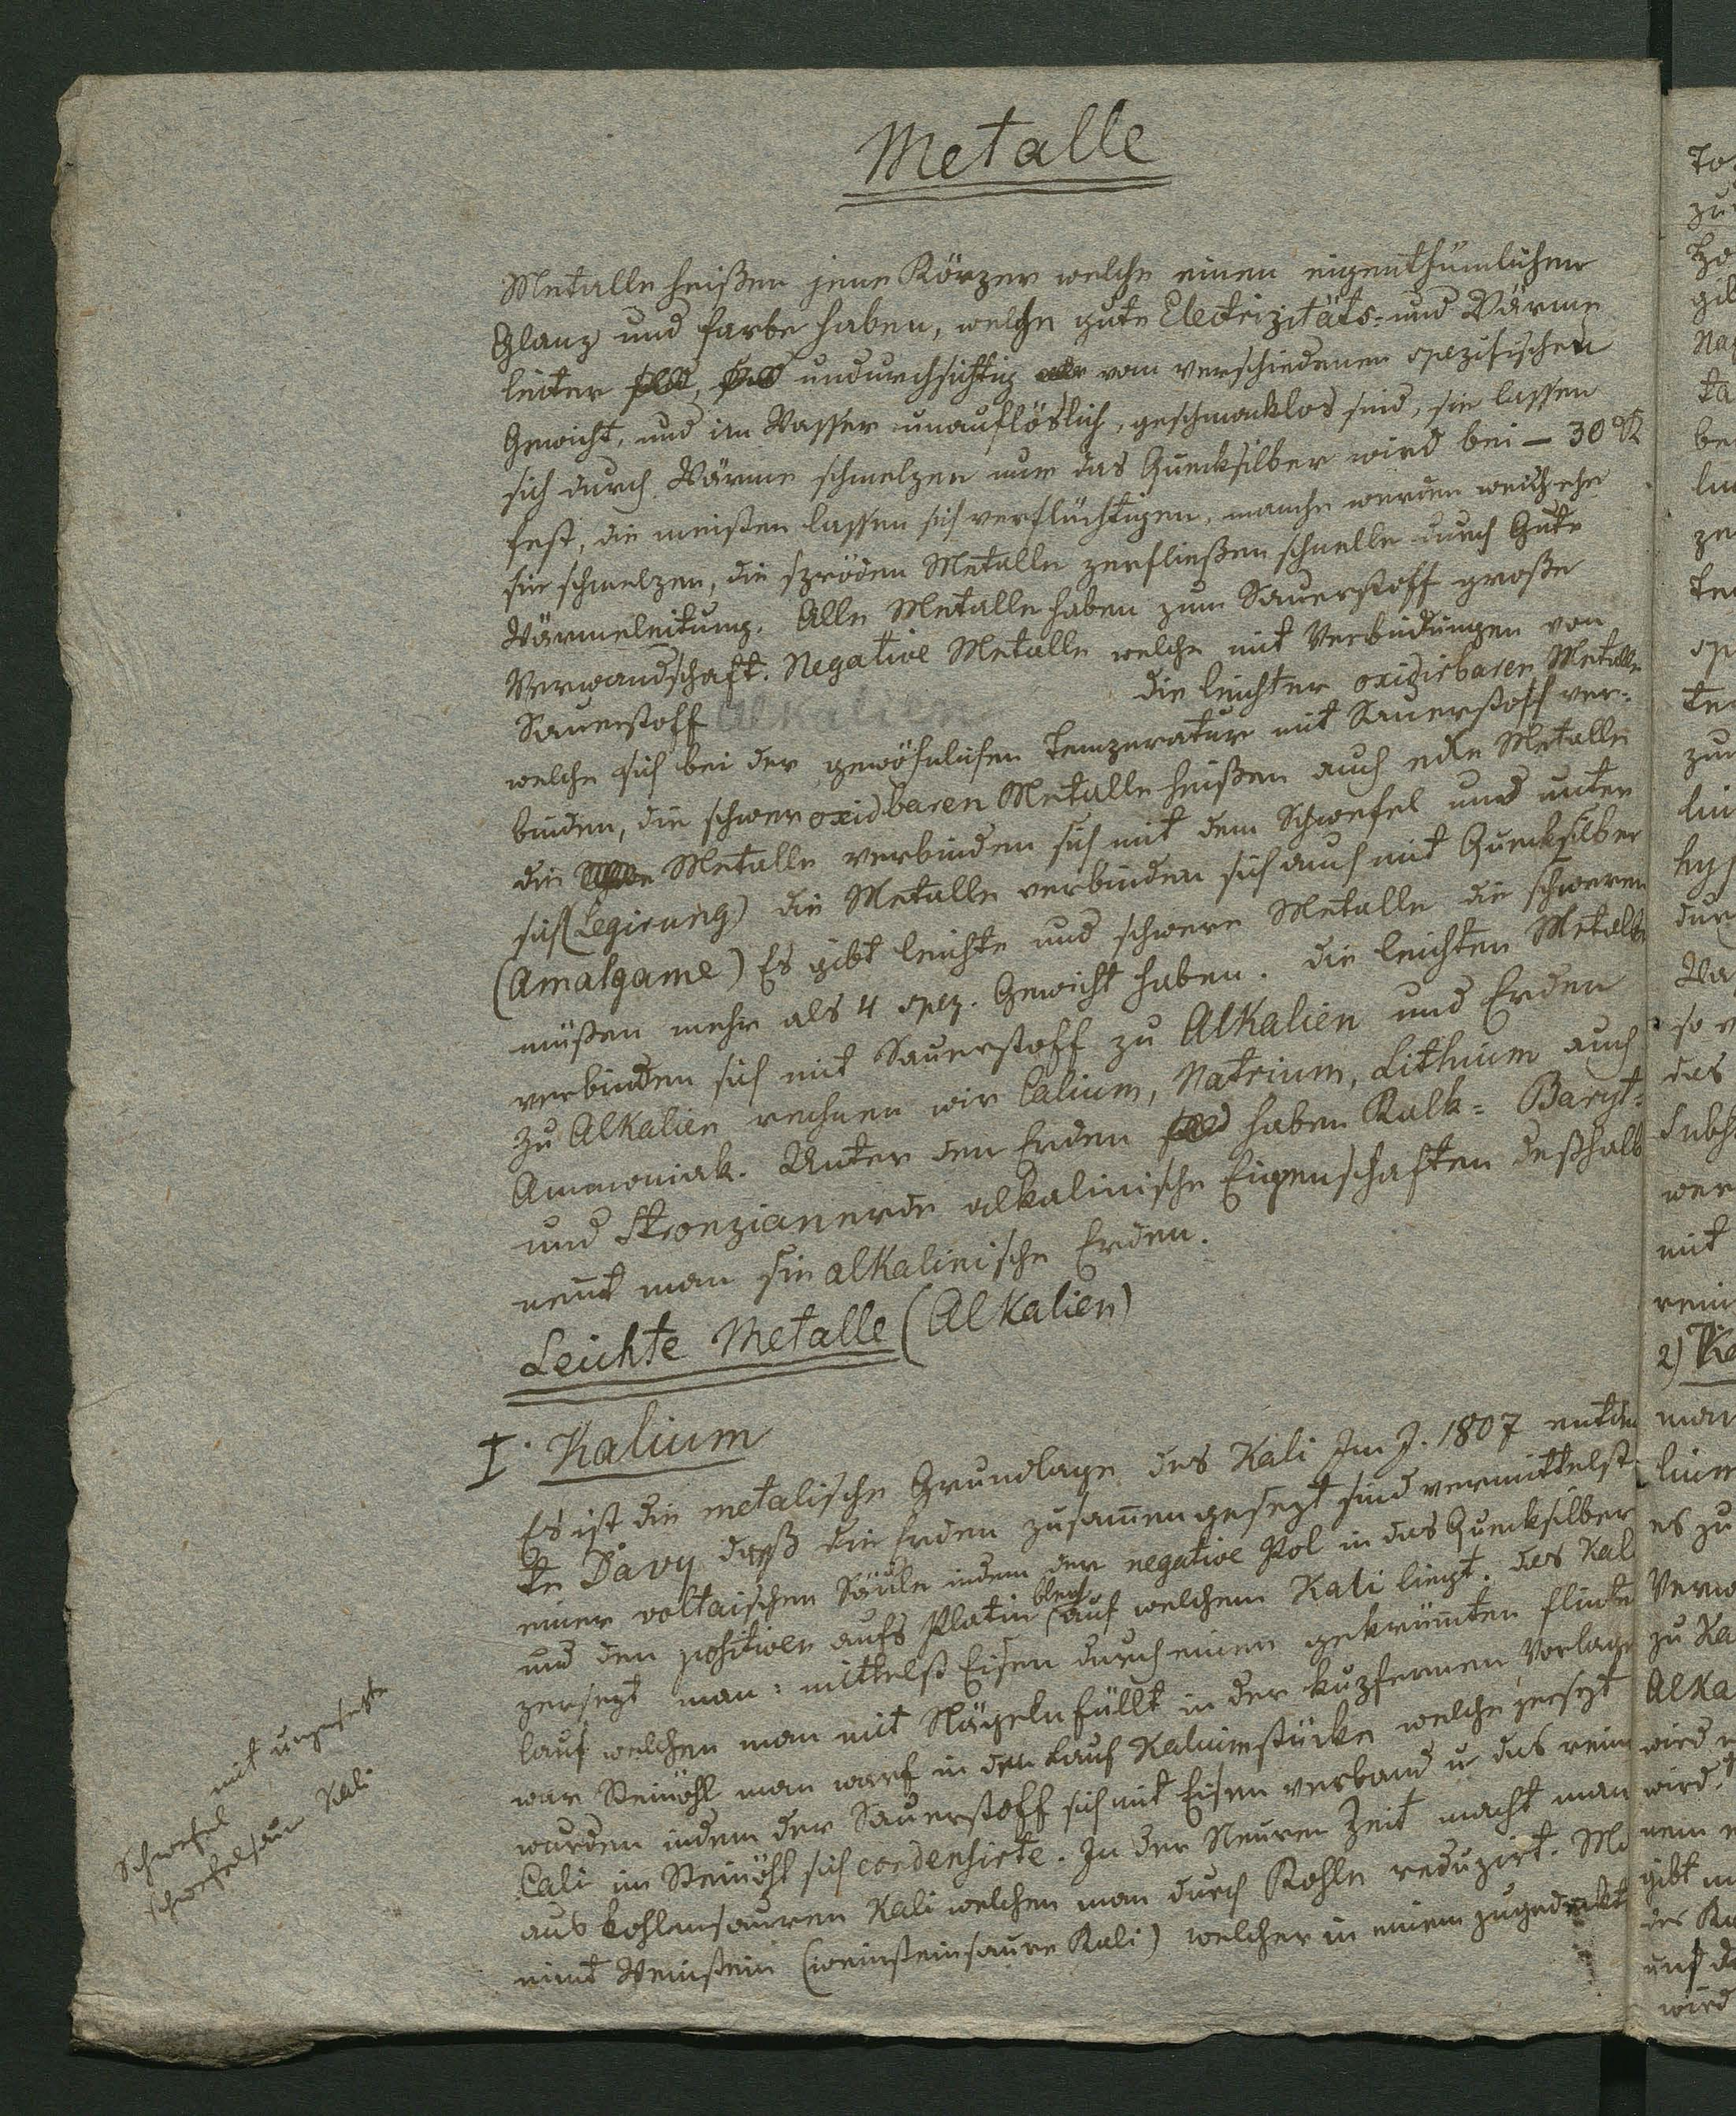 Metalle
Metalle heißen jene Körper welche einen eigenthümlichen
Glanz und Farbe haben, welche gute Electrizitäts- und Wärme
leiter undurchsichtig vom verschiedenen spezifischen
Gewicht, und im Wasser unauflöslich, geschmacklos sind, sie lassen
sich durch Wärme schmelzen nur das Quecksilber wird bei – 30 R
fest, die meisten lassen sich verflüchtigen, manche werden weich ehe
sie schmelzen, die spröden Metalle zerfließen schnelle durch Gute
Wärmeleitung. Alle Metalle haben zum Sauerstoff große
Verwandschaft. Negative Metalle welche mit Verbindungen von
Sauerstoff Alkalien die leichter oxidirbaren Metalle
welche sich bei der gewöhnlichen Temperatur mit Sauerstoff ver-
binden, die schwer oxidbaren Metalle heißen auch edle Metalle
die Metalle verbinden sich mit dem Schwefel und unter
sich (Legirung) die Metalle verbinden sich auch mit Quecksilber
(Amalgame) Es gibt leichte und schwere Metalle die schweren
müßen mehr als 4 spez. Gewicht haben. die leichten Metalle
verbinden sich mit Sauerstoff zu Alkalien und Erden
zu Alkalien rechnen wir Calium, Natrium, Lithium auch
Ammoniak. Unter den Erden haben Kalk- Baryt-
und Stronzianerde alkalinische Eigenschaften deßhalb
nennt man sie alkalinische Erden.
Leichte Metalle (Alkalien)
I. Kalium
Es ist die metalische Grundlage des Kali Im J. 1807 entdek
te Davy daß die Erden zusam̅engesezt sind vermittelst
einer voltaischen Säule indem der negative Pol in das Quecksilber
und den positiven aufs Platin blech auf welchem Kali liegt. das Kali
zersezt man: mittelst Eisen durch einen gekrüm̅ten Flinte
lauf welchen man mit Nägeln füllt in der kupfernen Vorlage
war Steinöhl man warf in den Lauf Kaliumstücke welche zersezt
wurden indem der Sauerstoff sich mit Eisen verband u das reine
Cali im Steinöhl sich condensirte. In der Neuren Zeit macht man
aus kohlensauren Kali welchen man durch Kohle reduzirt. Ma
nimt Weinstein (weinsteinsaure Kali) welcher in einem zugedeckt
Schwefel mit
schwefelsaur Kali